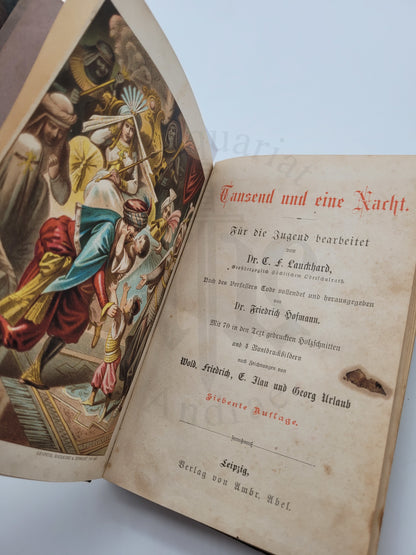 Tausend und eine Nacht.
Für die Jugend bearbeitet
von
Dr. C. F. Lauckhard,
Großherzoglich Sächsischem Oberschulrat.
Nach des Verfassers Tode vollendet und herausgegeben
von
Dr. Friedrich Hofmann.
Mit 70 in den Text gedruckten Holzschnitten
und 4 Buntdruckbildern
nach Zeichnungen von
Wold. Friedrich, E. Ilau und Georg Urlaub
Siebente Auflage.
Leipzig,
Verlag von Ambr. Abel.